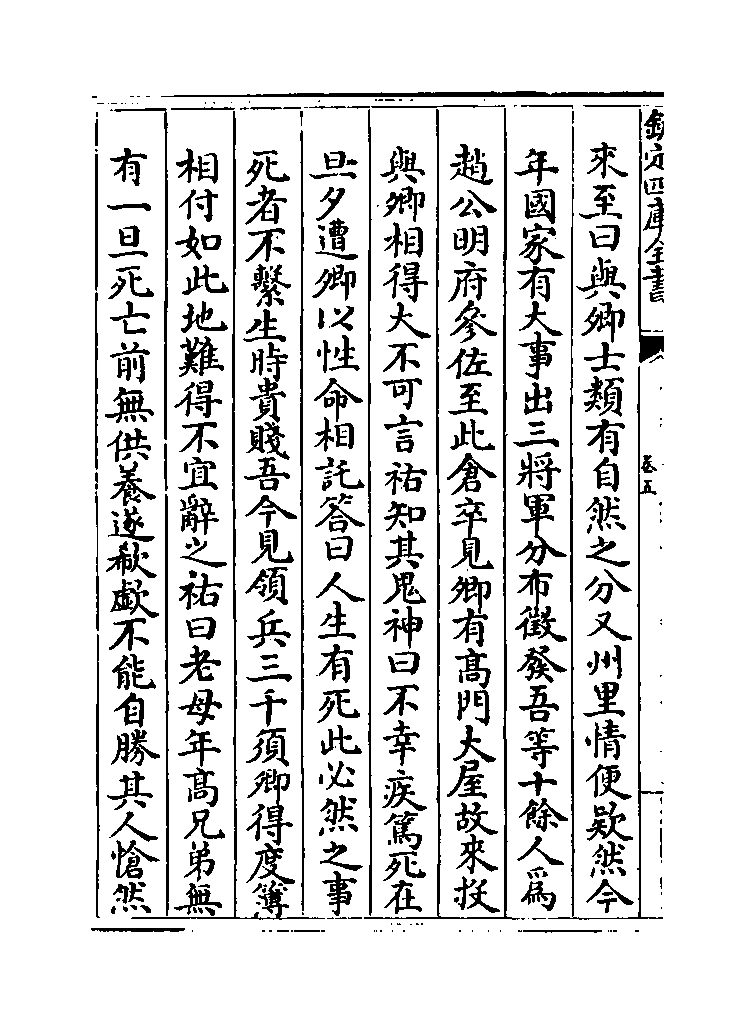 欽定四庫全書
卷五
來至曰與卿士類有自然之分又州里情便欵然今
年國家有大事出三將軍分布徵發吾等十餘人爲
趙公明府參佐至此倉卒見卿有高門大屋故來投
與卿相得大不可言祐知其鬼神曰不幸疾篤死在
旦夕遭卿以性命相託答曰人生有死此必然之事
死者不繫生時貴賤吾今見領兵三千須卿得度簿
相付如此地難得不宜辭之祐曰老母年高兄弟無
有一旦死亡前無供養遂欷歔不能自勝其人愴然